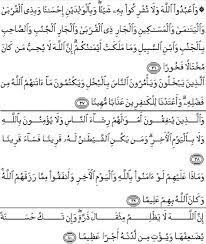 ۞ وَٱعْبُدُوا۟ ٱللَّهَ وَلَا تُشْرِكُوا۟ بِهِۦ شَيْـًٔا وَبِٱلْوَٰلِدَيْنِ إِحْسَـٰنًا وَبِذِى ٱلْقُرْبَىٰ
وَٱلْيَتَـٰمَىٰ وَٱلْمَسَـٰكِينِ وَٱلْجَارِ ذِى ٱلْقُرْبَىٰ وَٱلْجَارِ ٱلْجُنُبِ وَٱلصَّاحِبِ
بِٱلْجَنۢبِ وَٱبْنِ ٱلسَّبِيلِ وَمَا مَلَكَتْ أَيْمَـٰنُكُمْ إِنَّ ٱللَّهَ لَا يُحِبُّ مَن كَانَ
مُخْتَالًا فَخُورًا ٣٦
ٱلَّذِينَ يَبْخَلُونَ وَيَأْمُرُونَ ٱلنَّاسَ بِٱلْبُخْلِ وَيَكْتُمُونَ مَآ ءَاتَىٰهُمُ ٱللَّهُ مِن
فَضْلِهِۦ وَأَعْتَدْنَا لِلْكَـٰفِرِينَ عَذَابًا مُّهِينًا ٣٧
وَٱلَّذِينَ يُنفِقُونَ أَمْوَٰلَهُمْ رِئَآءَ ٱلنَّاسِ وَلَا يُؤْمِنُونَ بِٱللَّهِ
وَلَا بِٱلْيَوْمِ ٱلْـَٔاخِرِ وَمَن يَكُنِ ٱلشَّيْطَـٰنُ لَهُۥ قَرِينًا فَسَآءَ قَرِينًا
٣٨
وَمَاذَا عَلَيْهِمْ لَوْ ءَامَنُوا۟ بِٱللَّهِ وَٱلْيَوْمِ ٱلْـَٔاخِرِ وَأَنفَقُوا۟ مِمَّا رَزَقَهُمُ ٱللَّهُ
وَكَانَ ٱللَّهُ بِهِمْ عَلِيمًا ٣٩
إِنَّ ٱللَّهَ لَا يَظْلِمُ مِثْقَالَ ذَرَّةٍ وَإِن تَكُ حَسَنَةً
يُضَـٰعِفْهَا وَيُؤْتِ مِن لَّدُنْهُ أَجْرًا عَظِيمًا